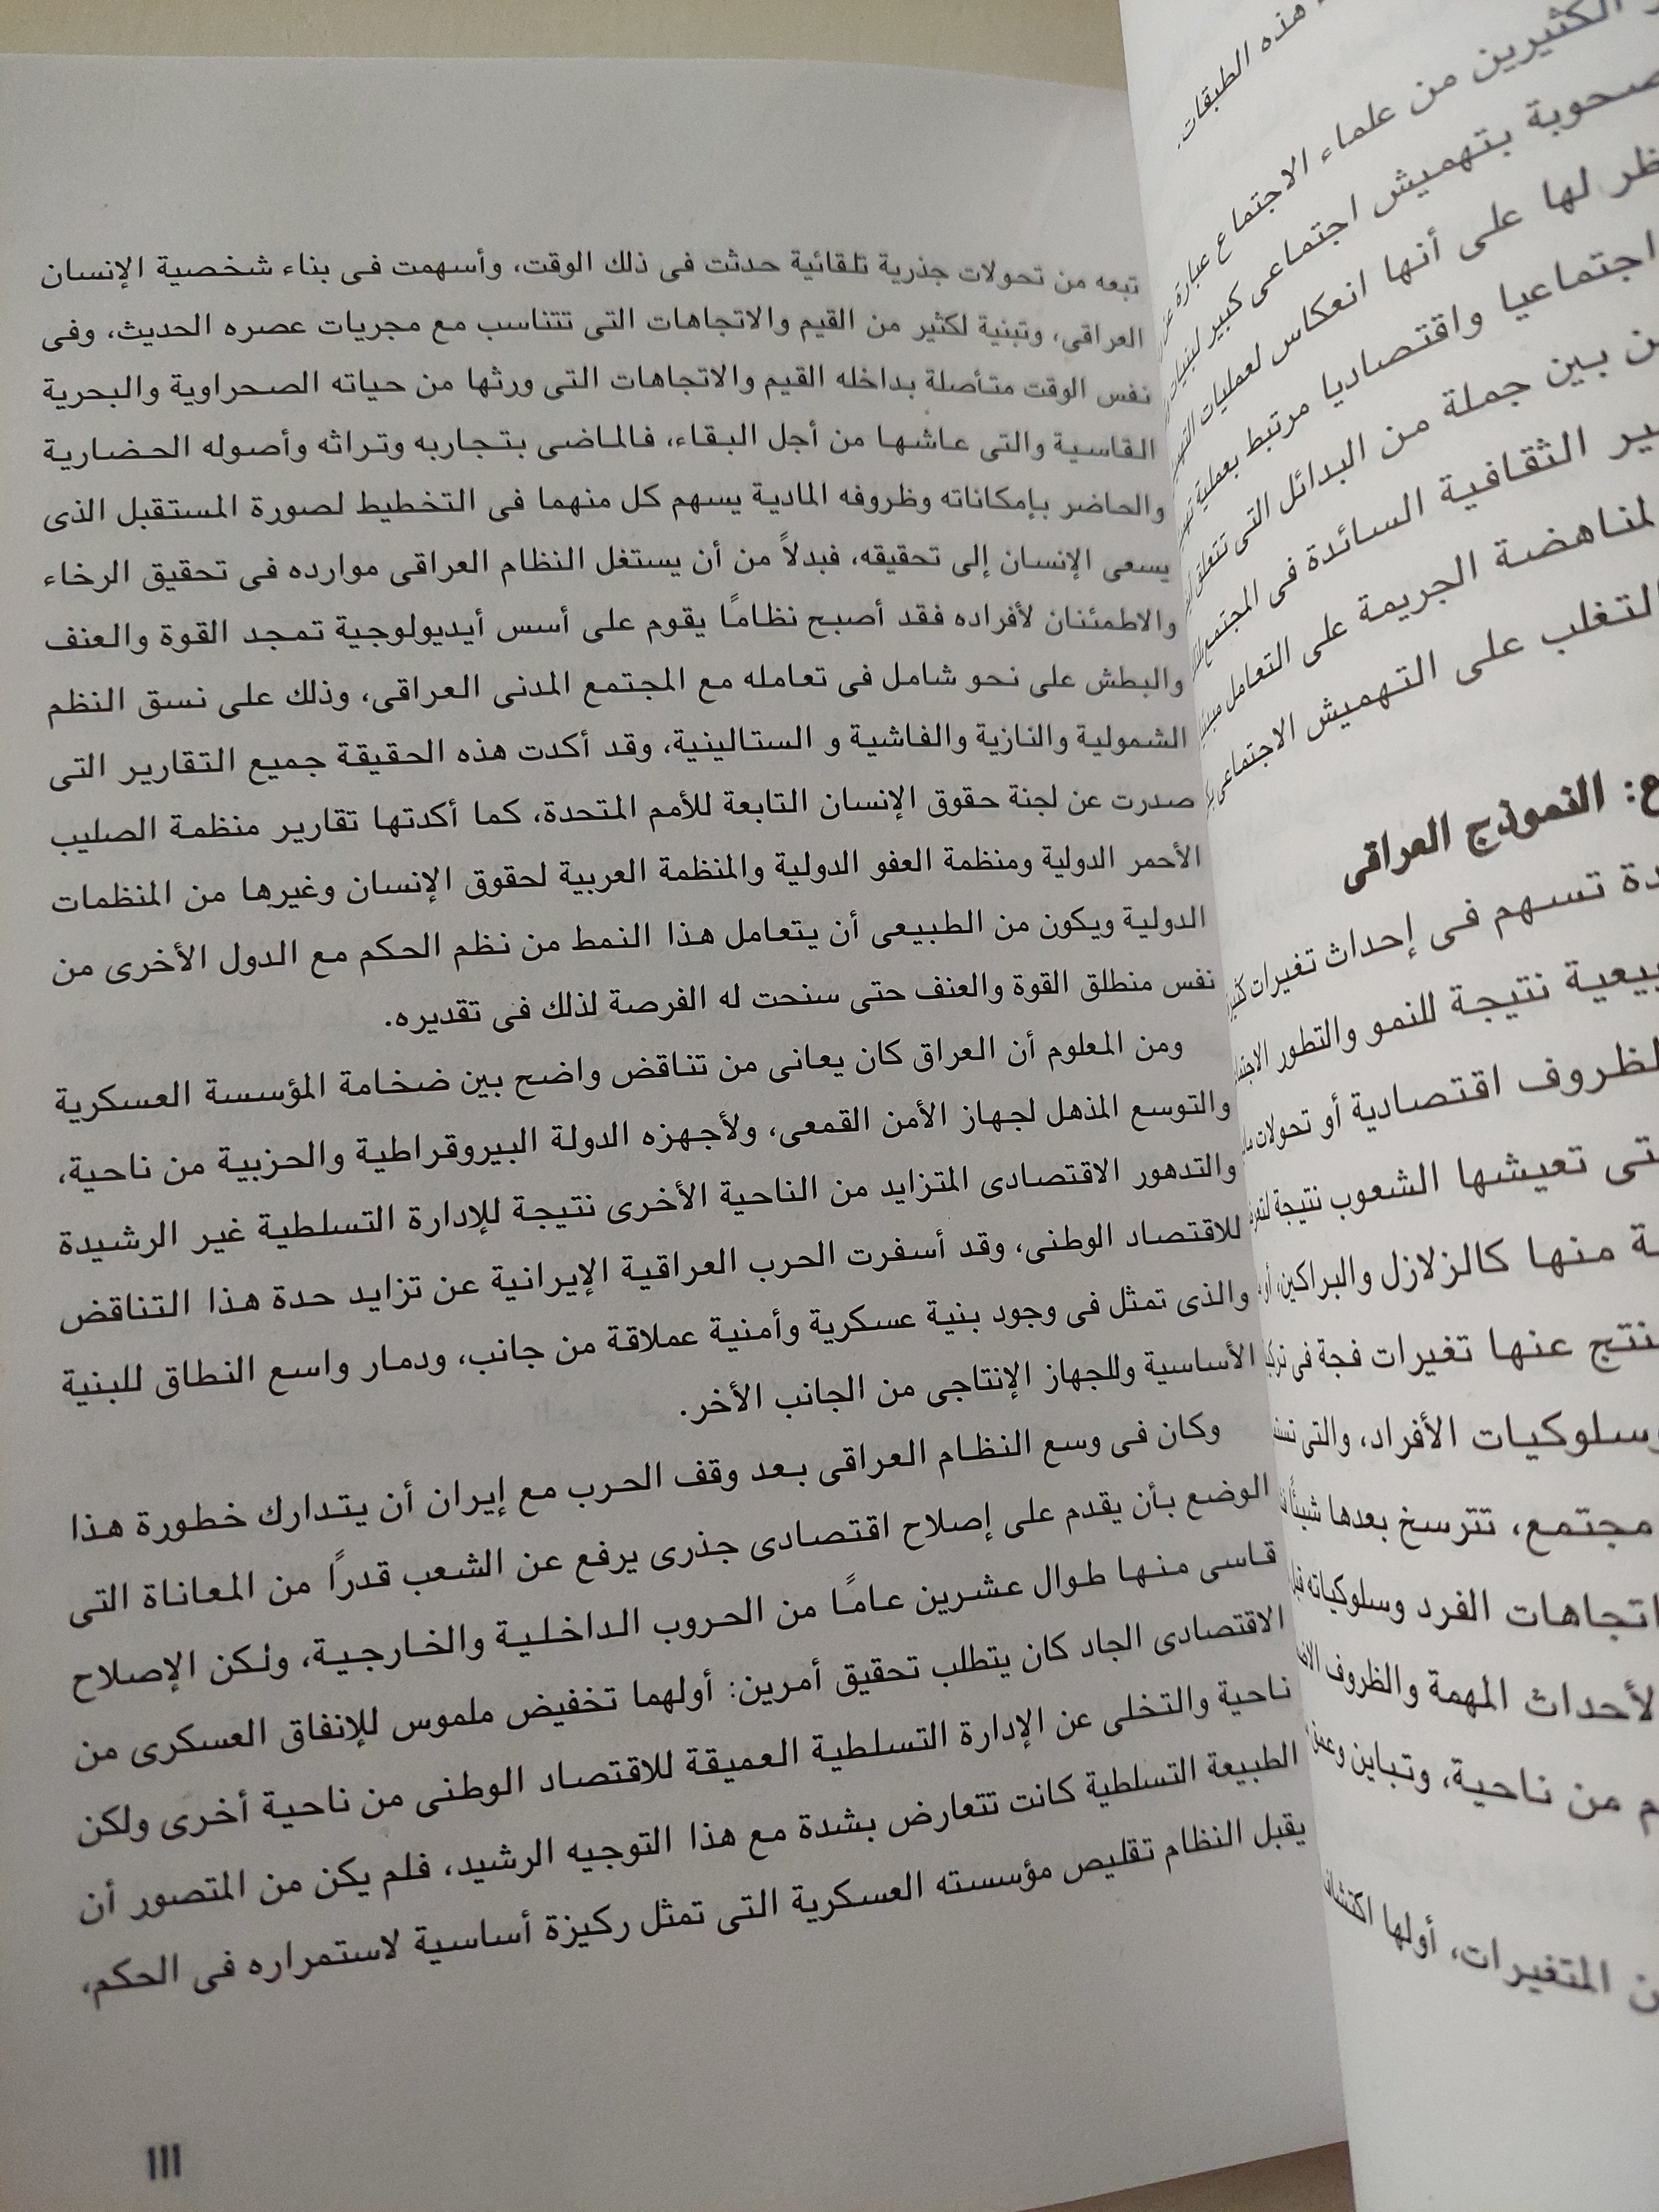 هذه الطبقات.
الكثيرين من علماء الاجتماع عبارة
بتهميش اجتماعى كبير
لها على أنها انعكاس لعمليات
اجتماعيا واقتصاديا مرتبط بعملية
بين جملة من البدائل التى تتعلق
الثقافية السائدة فى المجتمع
لمناهضة الجريمة على التعامل
التغلب على التهميش الاجتماعى
: النموذج العراقى
تسهم فى إحداث تغيرات
نتيجة للنمو والتطور
اقتصادية أو تحولات
تعيشها الشعوب نتيجة
منها كالزلازل والبراكين،
عنها تغيرات فجة فى
وسلوكيات الأفراد، والتى
مجتمع، تترسخ بعدها شيئًا
اتجاهات الفرد وسلوكياته
الأحداث المهمة والظروف
من ناحية، وتباين
المتغيرات، أولها
تبعه من تحولات جذرية تلقائية حدثت فى ذلك الوقت، وأسهمت فى بناء شخصية الإنسان
العراقى، وتبنية لكثير من القيم والاتجاهات التى تتناسب مع مجريات عصره الحديث، وفى
نفس الوقت متأصلة بداخله القيم والاتجاهات التى ورثها من حياته الصحراوية والبحرية
القاسية والتى عاشها من أجل البقاء، فالماضى بتجاربه وتراثه وأصوله الحضارية
والحاضر بإمكاناته وظروفه المادية يسهم كل منهما فى التخطيط لصورة المستقبل الذى
يسعى الإنسان إلى تحقيقه، فبدلاً من أن يستغل النظام العراقى موارده فى تحقيق الرخاء
والاطمئنان لأفراده فقد أصبح نظامًا يقوم على أسس أيديولوجية تمجد القوة والعنف
والبطش على نحو شامل فى تعامله مع المجتمع المدنى العراقى، وذلك على نسق النظم
الشمولية والنازية والفاشية و الستالينية، وقد أكدت هذه الحقيقة جميع التقارير التى
صدرت عن لجنة حقوق الإنسان التابعة للأمم المتحدة، كما أكدتها تقارير منظمة الصليب
الأحمر الدولية ومنظمة العفو الدولية والمنظمة العربية لحقوق الإنسان وغيرها من المنظمات
الدولية ويكون من الطبيعى أن يتعامل هذا النمط من نظم الحكم مع الدول الأخرى من
نفس منطلق القوة والعنف حتى سنحت له الفرصة لذلك فى تقديره.
ومن المعلوم أن العراق كان يعانى من تناقض واضح بين ضخامة المؤسسة العسكرية
والتوسع المذهل لجهاز الأمن القمعى، ولأجهزه الدولة البيروقراطية والحزبية من ناحية،
والتدهور الاقتصادى المتزايد من الناحية الأخرى نتيجة للإدارة التسلطية غير الرشيدة
للاقتصاد الوطنى، وقد أسفرت الحرب العراقية الإيرانية عن تزايد حدة هذا التناقض
والذى تمثل فى وجود بنية عسكرية وأمنية عملاقة من جانب، ودمار واسع النطاق للبنية
الأساسية وللجهاز الإنتاجى من الجانب الأخر.
وكان فى وسع النظام العراقى بعد وقف الحرب مع إيران أن يتدارك خطورة هذا
الوضع بأن يقدم على إصلاح اقتصادى جذرى يرفع عن الشعب قدرًا من المعاناة التى
قاسى منها طوال عشرين عامًا من الحروب الداخلية والخارجية، ولكن الإصلاح
الاقتصادى الجاد كان يتطلب تحقيق أمرين: أولهما تخفيض ملموس للإنفاق العسكرى من
ناحية والتخلى عن الإدارة التسلطية العميقة للاقتصاد الوطنى من ناحية أخرى ولكن
الطبيعة التسلطية كانت تتعارض بشدة مع هذا التوجيه الرشيد، فلم يكن من المتصور أن
يقبل النظام تقليص مؤسسته العسكرية التى تمثل ركيزة أساسية لاستمراره فى الحكم،
١١١